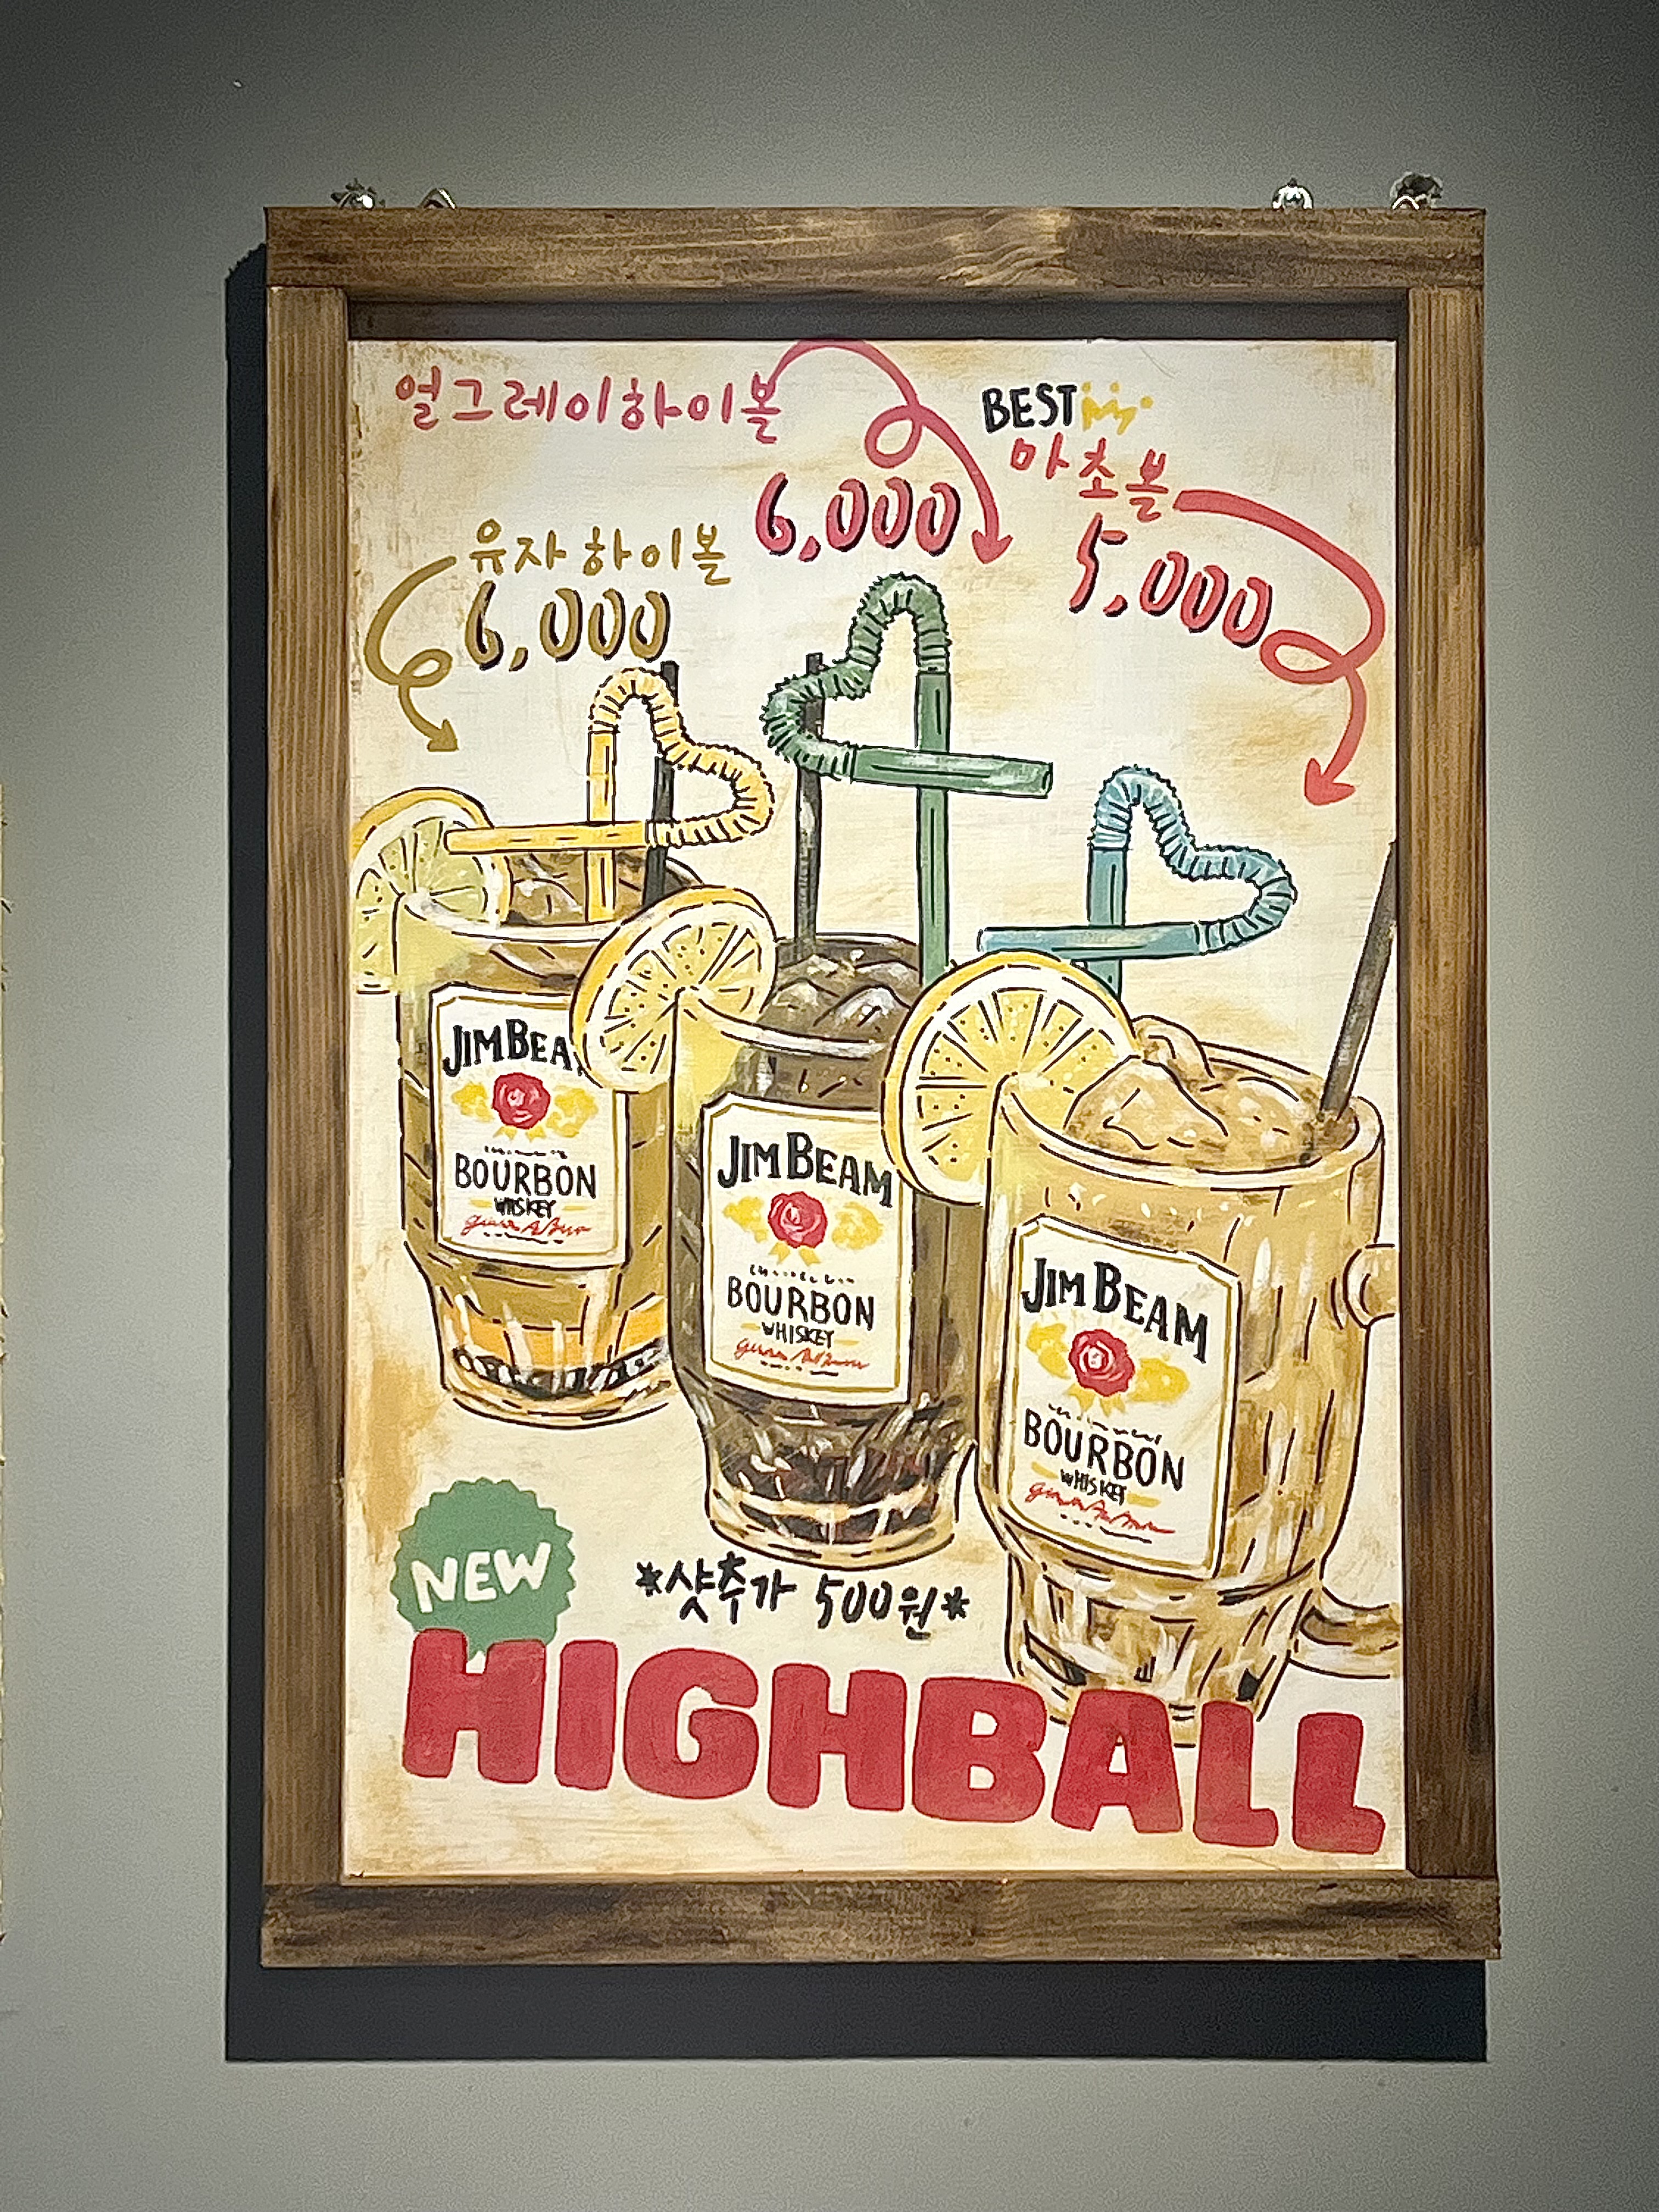 얼그레이하이볼
6,000
BEST
마초볼
5,000
유자하이볼
6,000
JIM BEA
BOURBON
WHISKEY
JIM BEAM
BOURBON
WHISKEY
JIM BEAM
BOURBON
WHISKEY
NEW
*샷추가 500원*
HIGHBALL